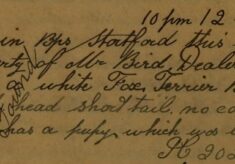 10 pm 12
in Bps Stortford this
erty of Mr Bird Deale
a white Fox Terrier B
head short tail, no co
has a pupy which was
Found
PC 202